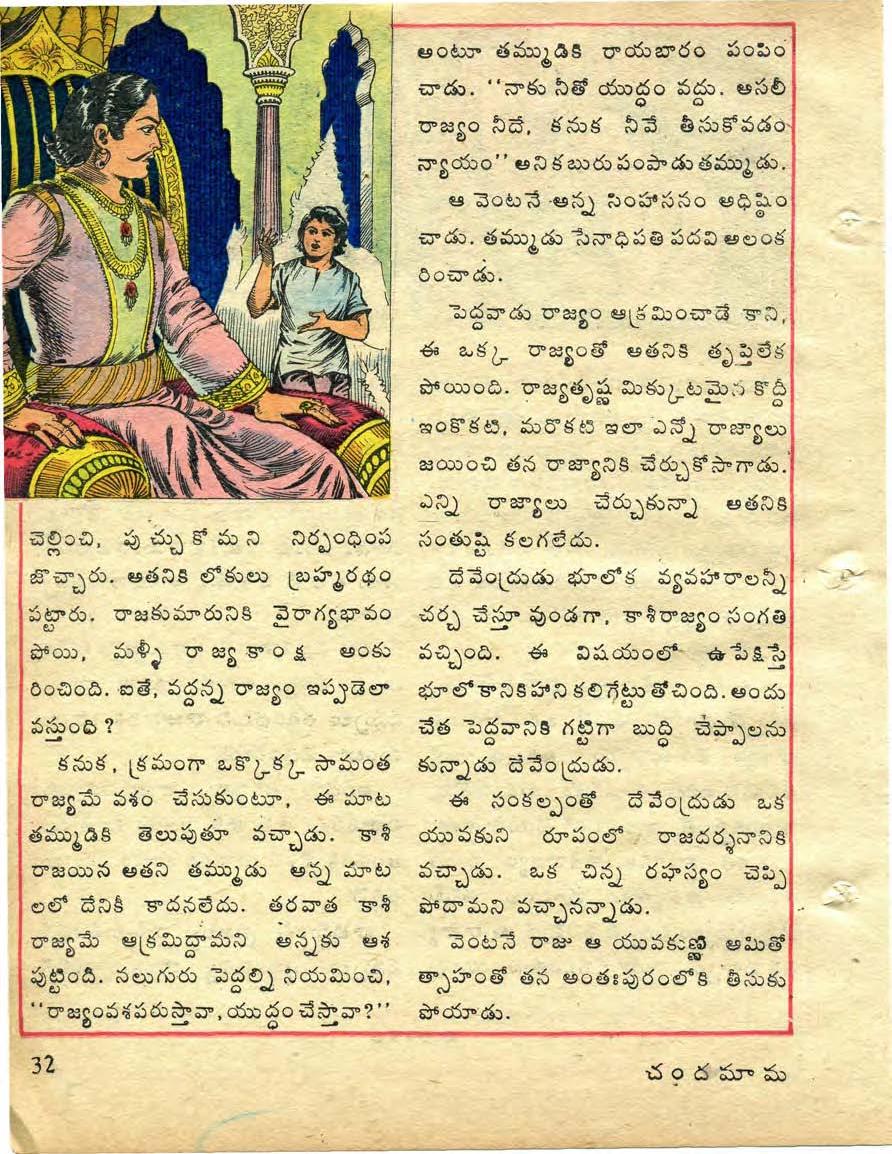 చెల్లించి, పుచ్చుకోమని నిర్బంధింప
జొచ్చారు. అతనికి లోకులు బ్రహ్మరథం
పట్టారు. రాజకుమారునికి వైరాగ్యభావం
పోయి, మళ్ళీ రాజ్యకాంక్ష అంకు
రించింది. ఐతే, వద్దన్న రాజ్యం ఇప్పుడెలా
వస్తుంది?
కనుక, క్రమంగా ఒక్కొక్క సామంత
రాజ్యమే వశం చేసుకుంటూ, ఈ మాట
తమ్ముడికి తెలుపుతూ వచ్చాడు. కాశీ
రాజయిన అతని తమ్ముడు అన్న మాట
లలో దేనికీ కాదనలేదు. తరవాత కాశీ
రాజ్యమే ఆక్రమిద్దామని అన్నకు ఆశ
పుట్టింది. నలుగురు పెద్దల్ని నియమించి,
“రాజ్యంవశపరుస్తావా, యుద్ధం చేస్తావా?”
అంటూ తమ్ముడికి రాయబారం పంపిం
చాడు. “నాకు నీతో యుద్ధం వద్దు. అసలీ
రాజ్యం నీదే, కనుక నీవే తీసుకోవడం
న్యాయం” అని కబురు పంపాడు తమ్ముడు.
ఆ వెంటనే అన్న సింహాసనం అధిష్ఠిం
చాడు. తమ్ముడు సేనాధిపతి పదవి అలంక
రించాడు.
పెద్దవాడు రాజ్యం ఆక్రమించాడే కాని,
ఈ ఒక్క రాజ్యంతో అతనికి తృప్తిలేక
పోయింది. రాజ్యతృష్ణ మిక్కుటమైన కొద్దీ
ఇంకొకటి, మరొకటి ఇలా ఎన్నో రాజ్యాలు
జయించి తన రాజ్యానికి చేర్చుకోసాగాడు.
ఎన్ని రాజ్యాలు చేర్చుకున్నా అతనికి
సంతుష్టి కలగలేదు.
దేవేంద్రుడు భూలోక వ్యవహారాలన్నీ
చర్చ చేస్తూ వుండగా, కాశీరాజ్యం సంగతి
వచ్చింది. ఈ విషయంలో ఉపేక్షిస్తే
భూలోకానికి హాని కలిగేట్టు తోచింది. అందు
చేత పెద్దవానికి గట్టిగా బుద్ధి చెప్పాలను
కున్నాడు దేవేంద్రుడు.
ఈ సంకల్పంతో దేవేంద్రుడు ఒక
యువకుని రూపంలో రాజదర్శనానికి
వచ్చాడు. ఒక చిన్న రహస్యం చెప్పి
పోదామని వచ్చానన్నాడు.
వెంటనే రాజు ఆ యువకుణ్ణి అమితో
త్సాహంతో తన అంతఃపురంలోకి తీసుకు
పోయాడు.
32
చందమామ